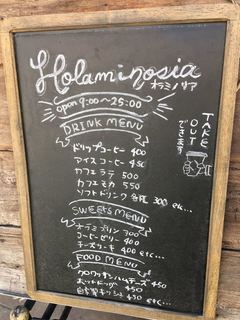 Holaminosia
オラミノシア
open 9:00~25:00
TAKE OUT できます
DRINK MENU
ドリップコーヒー 400
アイスコーヒー 450
カフェラテ 500
カフェモカ 550
ソフトドリンク 各種 300 etc...
SWEETS MENU
プリン 300
コーヒーゼリー 400
チーズケーキ 400 etc...
FOOD MENU
クロワッサンハムチーズ 450
ホットドッグ 450
自家製キッシュ 450 etc...